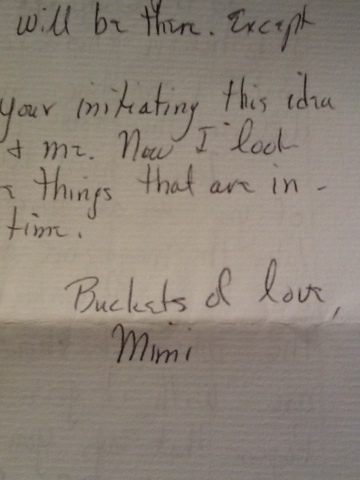 will be there. Except
your initiating this idea
& me. Now I look
things that are in -
time.
Buckets of love,
Mimi